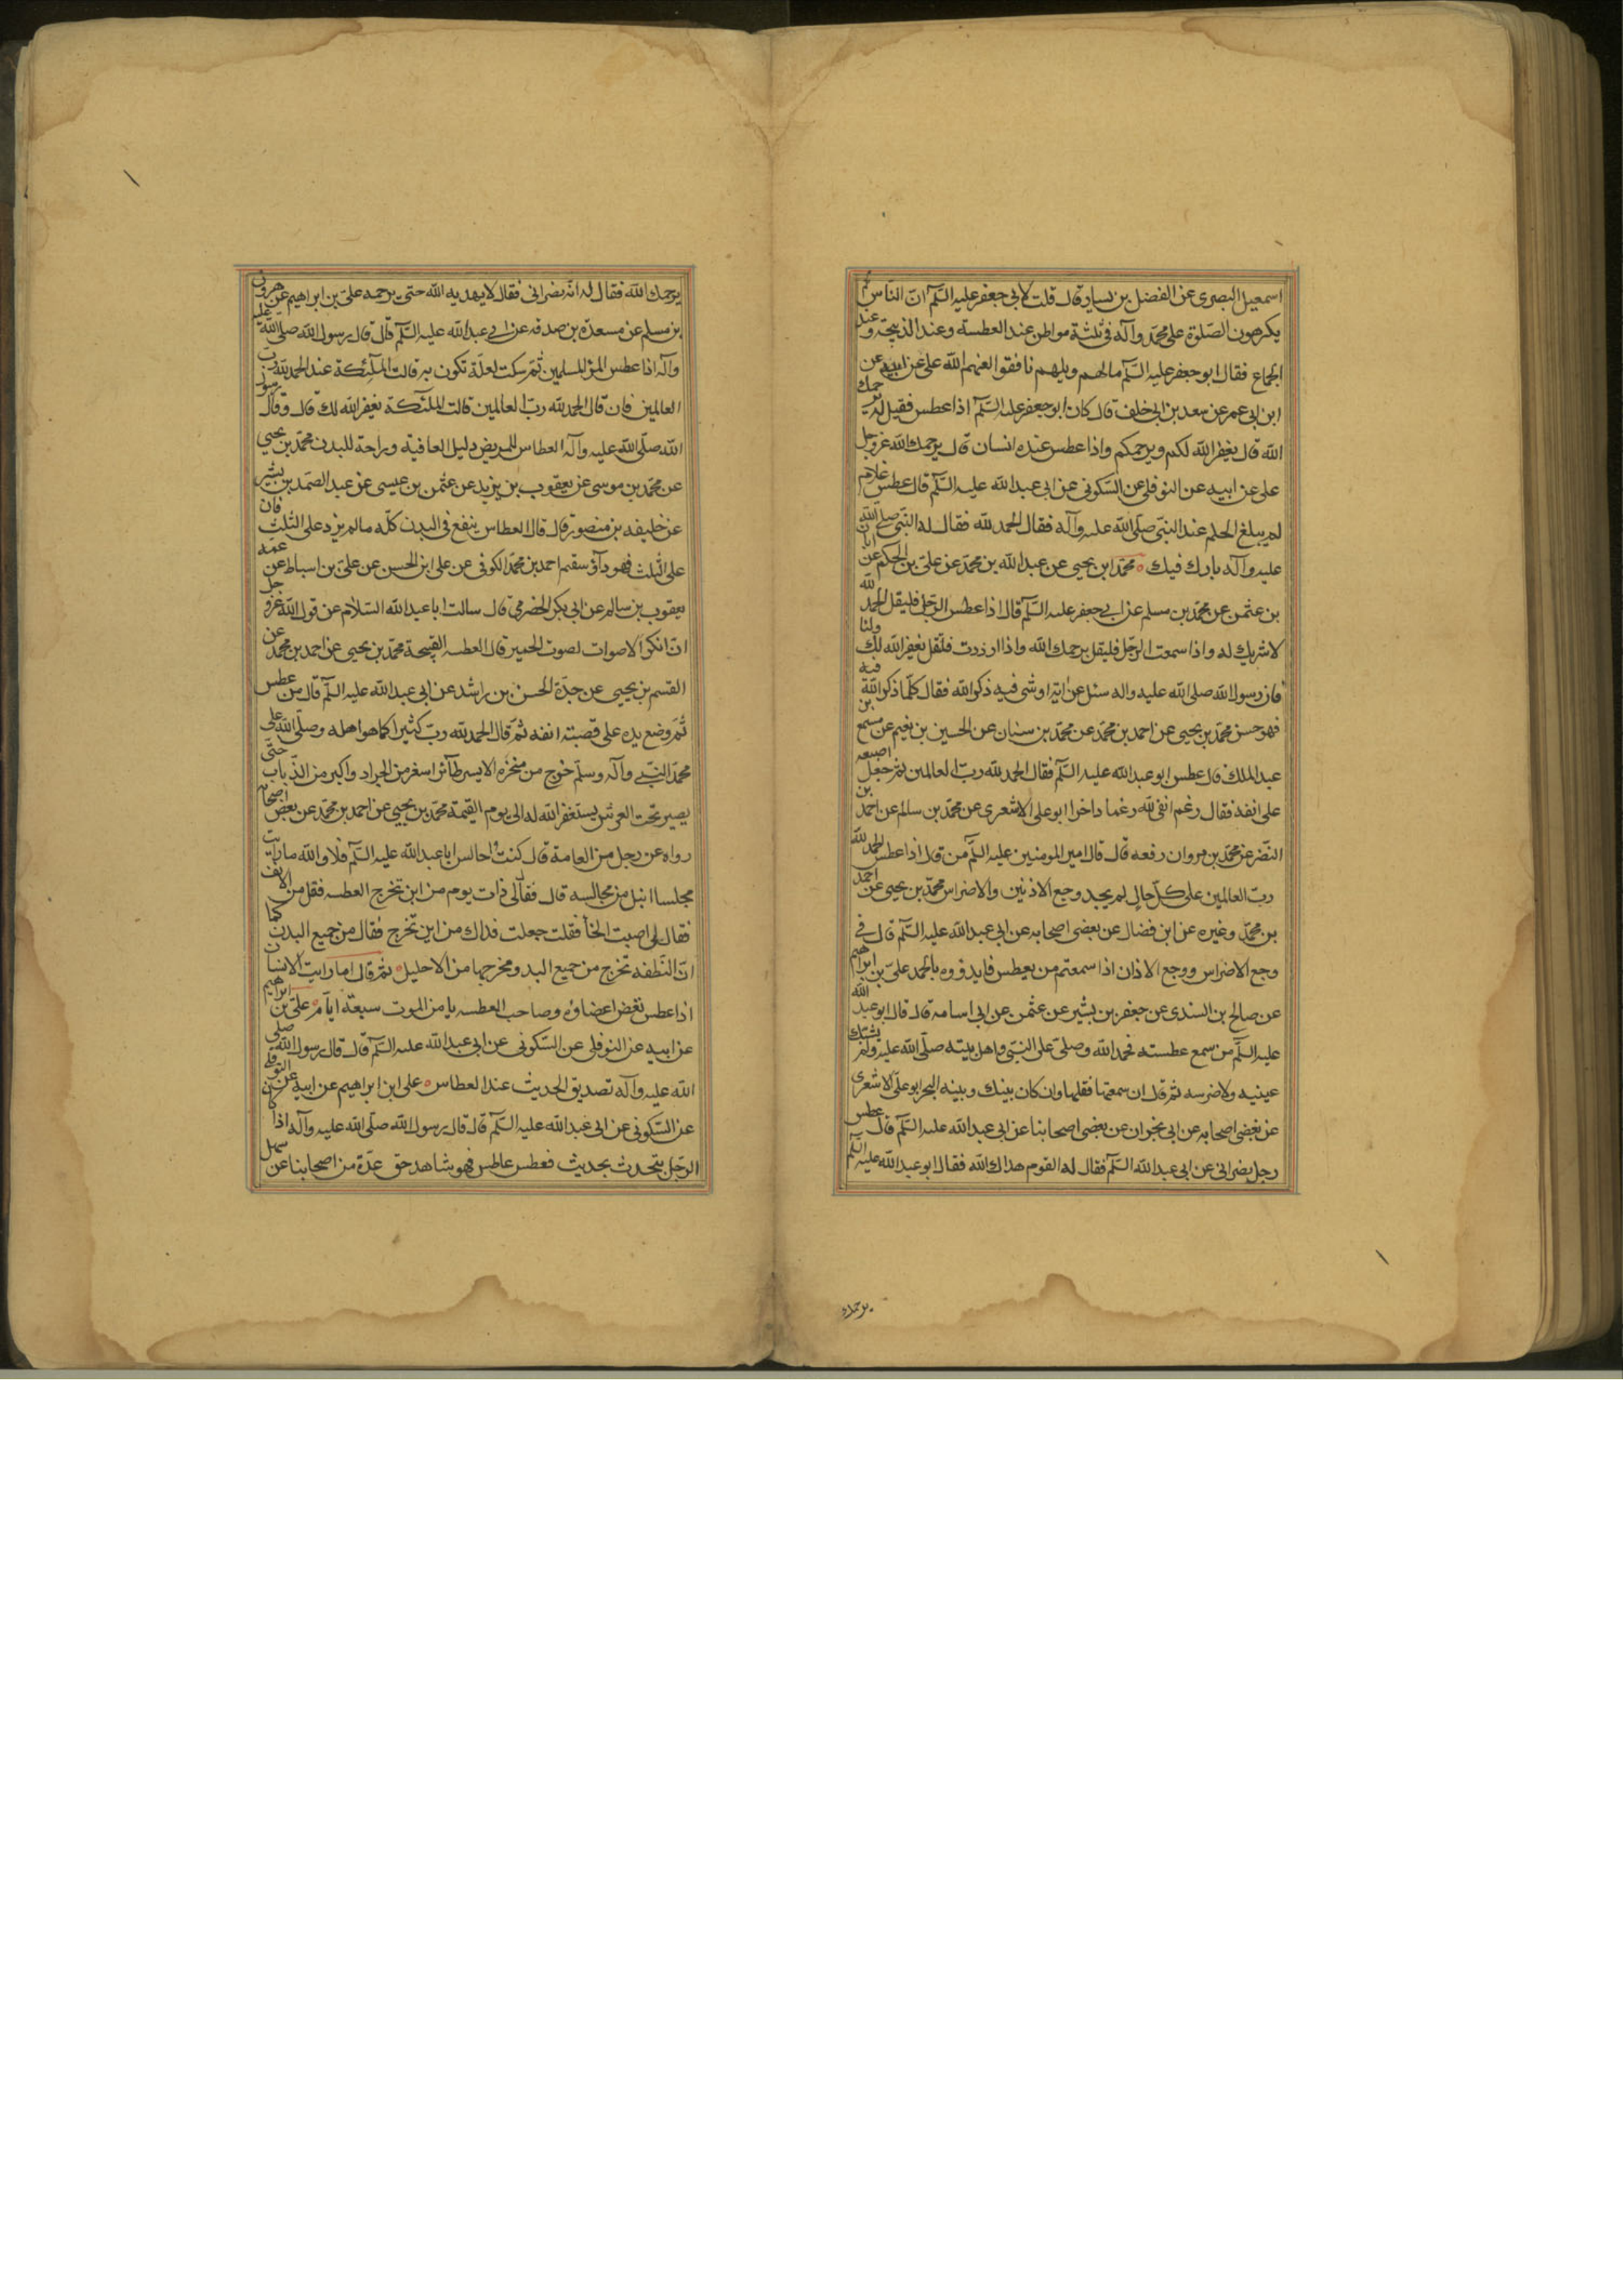 اسمعيل البصرى عن الفضل بن يسار قال قلت لابى جعفر عليه السلم ان الناس
يكرهون الصلوة على محمد وآله فى ثلثة مواطن عند العطسة وعند الذبيحة وعند
الجماع فقال ابو جعفر عليه السلم مالهم ويلهم نافقوا لعنهم الله على عن ابيه عن
ابن ابى عمر عن سعد بن ابى خلف قال كان ابو جعفر عليه السلم اذا عطس فقيل له يرحمك
الله قال يغفر الله لكم ويرحمكم واذا عطس عنده انسان قال يرحمك الله عز وجل
على عن ابيه عن النوفلى عن السكونى عن ابى عبد الله عليه السلم قال عطس غلام
لم يبلغ الحلم عند النبى صلى الله عليه وآله فقال الحمد لله فقال له النبى صلى الله
عليه وآله بارك فيك محمد ابن يحيى عن عبد الله بن محمد عن على بن الحكم عن ابان
بن عثمن عن محمد بن مسلم عن ابى جعفر عليه السلم قال اذا عطس الرجل فليقل الحمد لله
لا شريك له واذا سمعت الرجل فليقل يرحمك الله واذا اردت فلتقل يغفر الله لك ولنا
فان رسول الله صلى الله عليه واله سئل عن اية او شى فيه ذكر الله فقال كلما ذكر الله فيه
فهو حسن محمد بن يحيى عن احمد بن محمد عن محمد بن سنان عن الحسين بن نعيم عن مسمع بن
عبد الملك قال عطس ابو عبد الله عليه السلم فقال الحمد لله رب العالمين ثم جعل اصبعه
على انفه فقال رغم انفى لله رغما داخرا ابو على الاشعرى عن محمد بن سالم عن احمد بن
النضر عن محمد بن مروان رفعه قال قال امير المومنين عليه السلم من قال اذا عطس الحمد لله
رب العالمين على كل حال لم يجد وجع الاذنين والاضراس محمد بن يحيى عن احمد
بن محمد وغيره عن ابن فضال عن بعض اصحابه عن ابى عبد الله عليه السلم قال فى
وجع الاضراس ووجع الاذان اذا سمعتم من يعطس فابدؤوه بالحمد على بن ابراهيم
عن صالح بن السندى عن جعفر بن بشير عن عثمن عن ابى اسامة قال قال ابو عبد الله
عليه السلم من سمع عطسته فحمد الله وصلى على النبى واهل بيته صلى الله عليه ولم يشتك
عينيه ولا ضرسه ثم قال ان سمعتها فقلها وان كان بينك وبينه البحر ابو على الاشعرى
عن بعض اصحابه عن ابى نجران عن بعض اصحابنا عن ابى عبد الله عليه السلم قال عطس
رجل نصرانى عن ابى عبد الله السلم فقال له القوم هداك الله فقال ابو عبد الله عليه السلم
يرحمك
يرحمك الله فقال له انه نصرانى فقال لا يهديه الله حتى يرحمه على بن ابراهيم عن هرون
بن مسلم عن مسعدة بن صدقه عن ابى عبد الله عليه السلم قال قال رسول الله صلى الله عليه
وآله اذا عطس المرؤ المسلمين ثم سكت لعلة تكون به قالت الملئكة عند الحمد لله رب
العالمين فان قال الحمد لله رب العالمين قالت الملئكة يغفر الله لك قال وقال رسول
الله صلى الله عليه وآله العطاس للمريض دليل العافيه وراحة للبدن محمد بن يحيى
عن محمد بن موسى عن يعقوب بن يزيد عن عثمن بن عيسى عن عبد الصمد بن بشير
عن خليفه بن منصور قال قال العطاس ينفع فى البدن كله مالم يزد على الثلث فان
على الثلث فهو دآؤ وسقم احمد بن محمد الكوفى عن على ابن الحسن عن على بن اسباط عن عمه
يعقوب بن سالم عن ابى بكر الحضرمى قال سالت ابا عبد الله السلام عن قول الله عز وجل
ان انكر الاصوات لصوت الحمير قال العطسه القبيحة محمد بن يحيى عن احمد بن محمد عن
القسم بن يحيى عن جدة الحسن بن راشد عن ابى عبد الله عليه السلم قال من عطس
ثم وضع يده على قصبته انفه ثم قال الحمد لله رب كثيرا كما هو اهله وصلى الله على
محمد النبى وآله وسلم خرج من منخره الايسر طآئر اسغر من الجراد واكبر من الذباب حتى
يصير تحت العرش يستغفر الله له الى يوم القيمة محمد بن يحيى عن احمد بن محمد عن بعض اصحابه
رواه عن رجل من العامة قال كنت اجالس ابا عبد الله عليه السلم فلا والله ما رايت
مجلسا انبل من مجالسه قال فقال لى ذات يوم من اين تخرج العطسه فقل من الانف
فقال لى اصبت الخطأ فقلت جعلت فداك من اين تخرج فقال من جميع البدن كما
ان النطفه تخرج من جميع البد ومخرجها من الاحليل ثم قال اما رايت الانسان
اذا عطس نفض اعضاؤه وصاحب العطسه يامن الموت سبعة ايام على بن ابراهيم
عن ابيه عن النوفلى عن السكونى عن ابى عبد الله عليه السلم قال قال رسول الله صلى
الله عليه وآله تصديق الحديث عند العطاس على ابن ابراهيم عن ابيه عن النوفلى
عن السكونى عن ابى عبد الله عليه السلم قال قال رسول الله صلى الله عليه وآله اذا كان
الرجل يتحدث بحديث فعطس عاطس فهو شاهد حق عدة من اصحابنا عن سهل